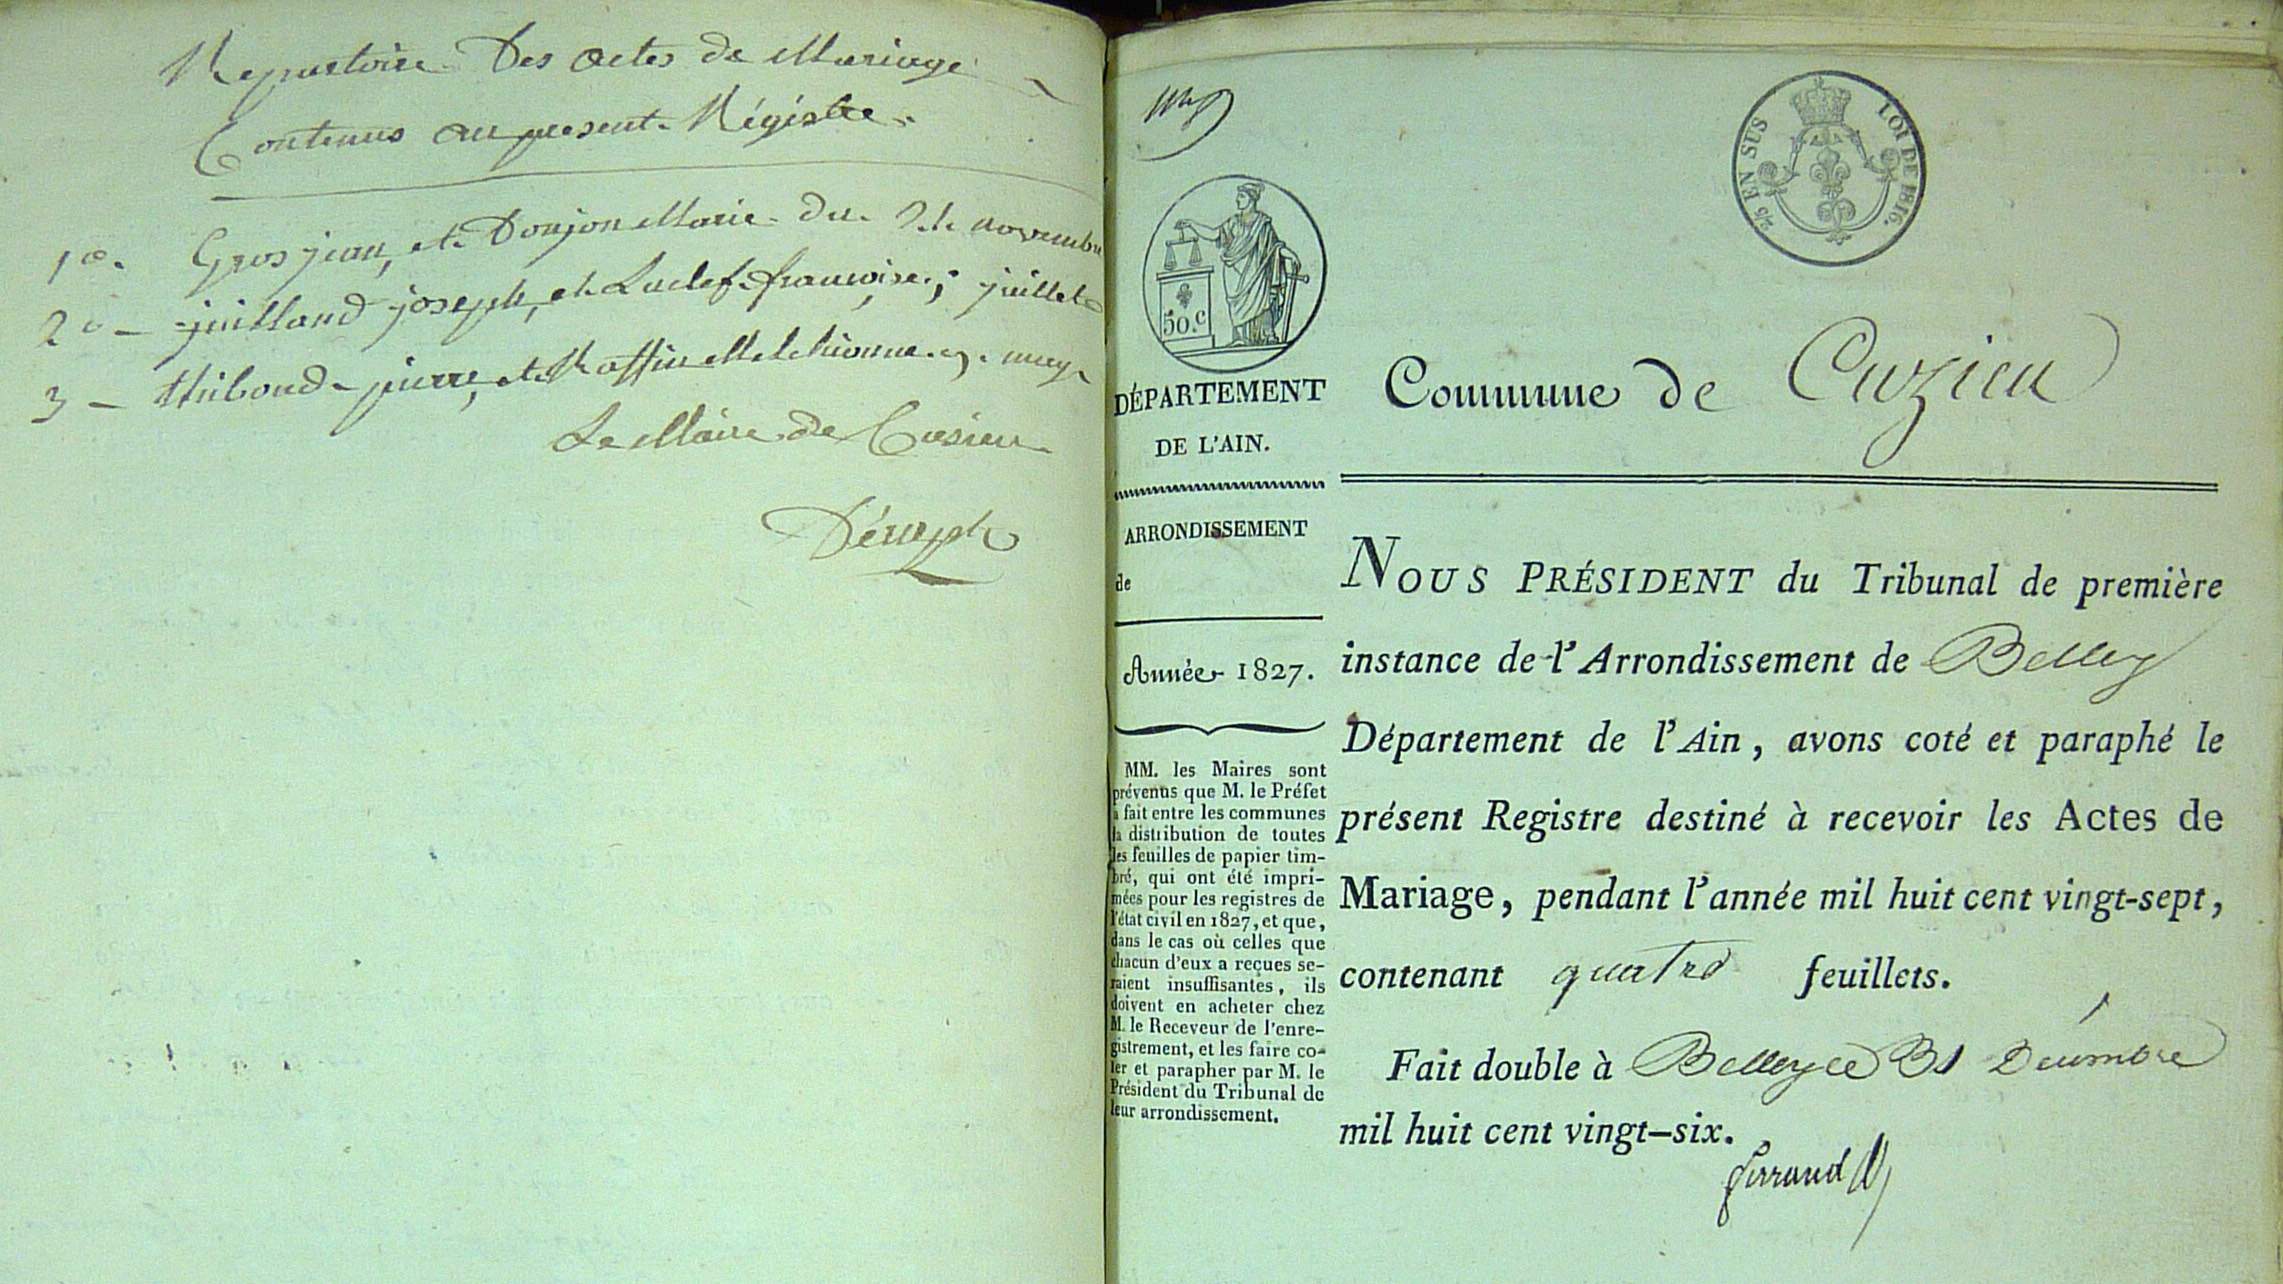 Repertoire Des actes de Mariage
Contenus au present Régistre.
1o. Gros jean, et Donjon Marie du 21 novembre
2o - juilland joseph, et Luclef françoise, juillet
3 - thiboud pierre, et Roffin Melchionne 9. may
Le Maire de Cusieu
DÉPARTEMENT
DE L'AIN.
ARRONDISSEMENT
de
Année 1827.
MM. les Maires sont
prévenus que M. le Préfet
a fait entre les communes
la distribution de toutes
les feuilles de papier tim-
bré, qui ont été impri-
mées pour les registres de
l'état civil en 1827, et que,
dans le cas où celles que
chacun d'eux a reçues se-
raient insuffisantes, ils
doivent en acheter chez
M. le Receveur de l'enre-
gistrement, et les faire co-
ter et parapher par M. le
Président du Tribunal de
leur arrondissement.
50.c
2/5 EN SUS
LOI DE 1816.
Commune de Cuzieu
NOUS PRÉSIDENT du Tribunal de première
instance de l'Arrondissement de Belley
Département de l'Ain, avons coté et paraphé le
présent Registre destiné à recevoir les Actes de
Mariage, pendant l'année mil huit cent vingt-sept,
contenant quatre feuillets.
Fait double à Belley ce 31 Décembre
mil huit cent vingt-six.
ferrand